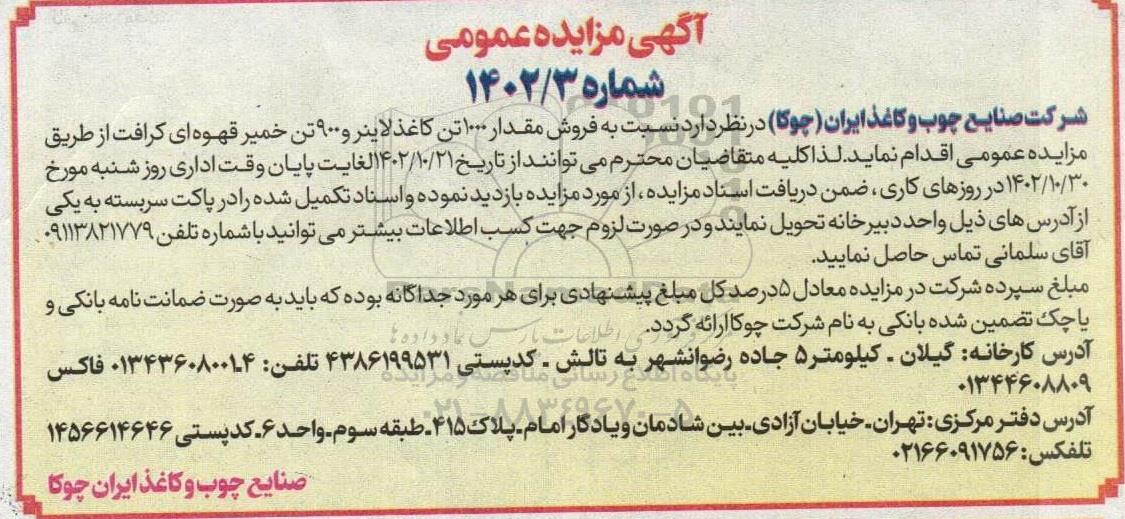 آگهی مزایده عمومی
شماره ۱۴۰۲/۳
شرکت صنایع چوب و کاغذ ایران (چوکا) در نظر دارد نسبت به فروش مقدار ۱۰۰۰ تن کاغذ لاینر و ۹۰۰ تن خمیر قهوه ای کرافت از طریق
مزایده عمومی اقدام نماید. لذا کلیه متقاضیان محترم می توانند از تاریخ ۱۴۰۲/۱۰/۲۱ لغایت پایان وقت اداری روز شنبه مورخ
۱۴۰۲/۱۰/۳۰ در روزهای کاری، ضمن دریافت اسناد مزایده، از مورد مزایده بازدید نموده و اسناد تکمیل شده را در پاکت سربسته به یکی
از آدرس های ذیل واحد دبیرخانه تحویل نمایند و در صورت لزوم جهت کسب اطلاعات بیشتر می توانید با شماره تلفن ۰۹۱۱۳۸۲۱۷۷۹
آقای سلمانی تماس حاصل نمایید.
مبلغ سپرده شرکت در مزایده معادل ۵ درصد کل مبلغ پیشنهادی برای هر مورد جداگانه بوده که باید به صورت ضمانت نامه بانکی و
یا چک تضمین شده بانکی به نام شرکت چوکا ارائه گردد.
آدرس کارخانه: گیلان ـ کیلومتر ۵ جاده رضوانشهر به تالش ـ کدپستی ۴۳۸۶۱۹۹۵۳۱ تلفن: ۴ـ۰۱۳۴۳۶۰۸۰۰۱ فاکس
۰۱۳۴۴۶۰۸۸۰۹
آدرس دفتر مرکزی: تهران ـ خیابان آزادی ـ بین شادمان و یادگار امام ـ پلاک ۴۱۵ ـ طبقه سوم ـ واحد ۶ ـ کدپستی ۱۴۵۶۶۱۴۶۴۶
تلفکس: ۰۲۱۶۶۰۹۱۷۵۶
صنایع چوب و کاغذ ایران چوکا
پایگاه اطلاع رسانی مناقصه و مزایده
۰۲۱-۸۸۳۴۹۶۷۰-۵